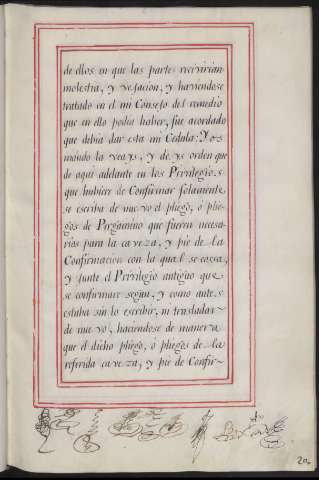 de ellos en que las partes recivirian
molestia, y vejacion, y haviendose
tratado en el mi Consejo del remedio
que en ello podia haber, fue acordado
que debia dar esta mi Cedula: Yo os
mando la veays, y deys orden que
de aqui adelante en los Privilegios
que hubiere de Confirmar solamente
se escriba de nuevo el pliego, ó plie-
gos de Pergamino que fueren necesa-
rios para la caveza, y pie de la
Confirmacion con la qual se cossa,
y junte el Privilegio antiguo que
se confirmare segun, y como antes
estaba sin lo escribir, ni trasladar
de nuevo, haciendose de manera
que el dicho pliego, ó pliegos de la
referida caveza, y pie de Confir-
20